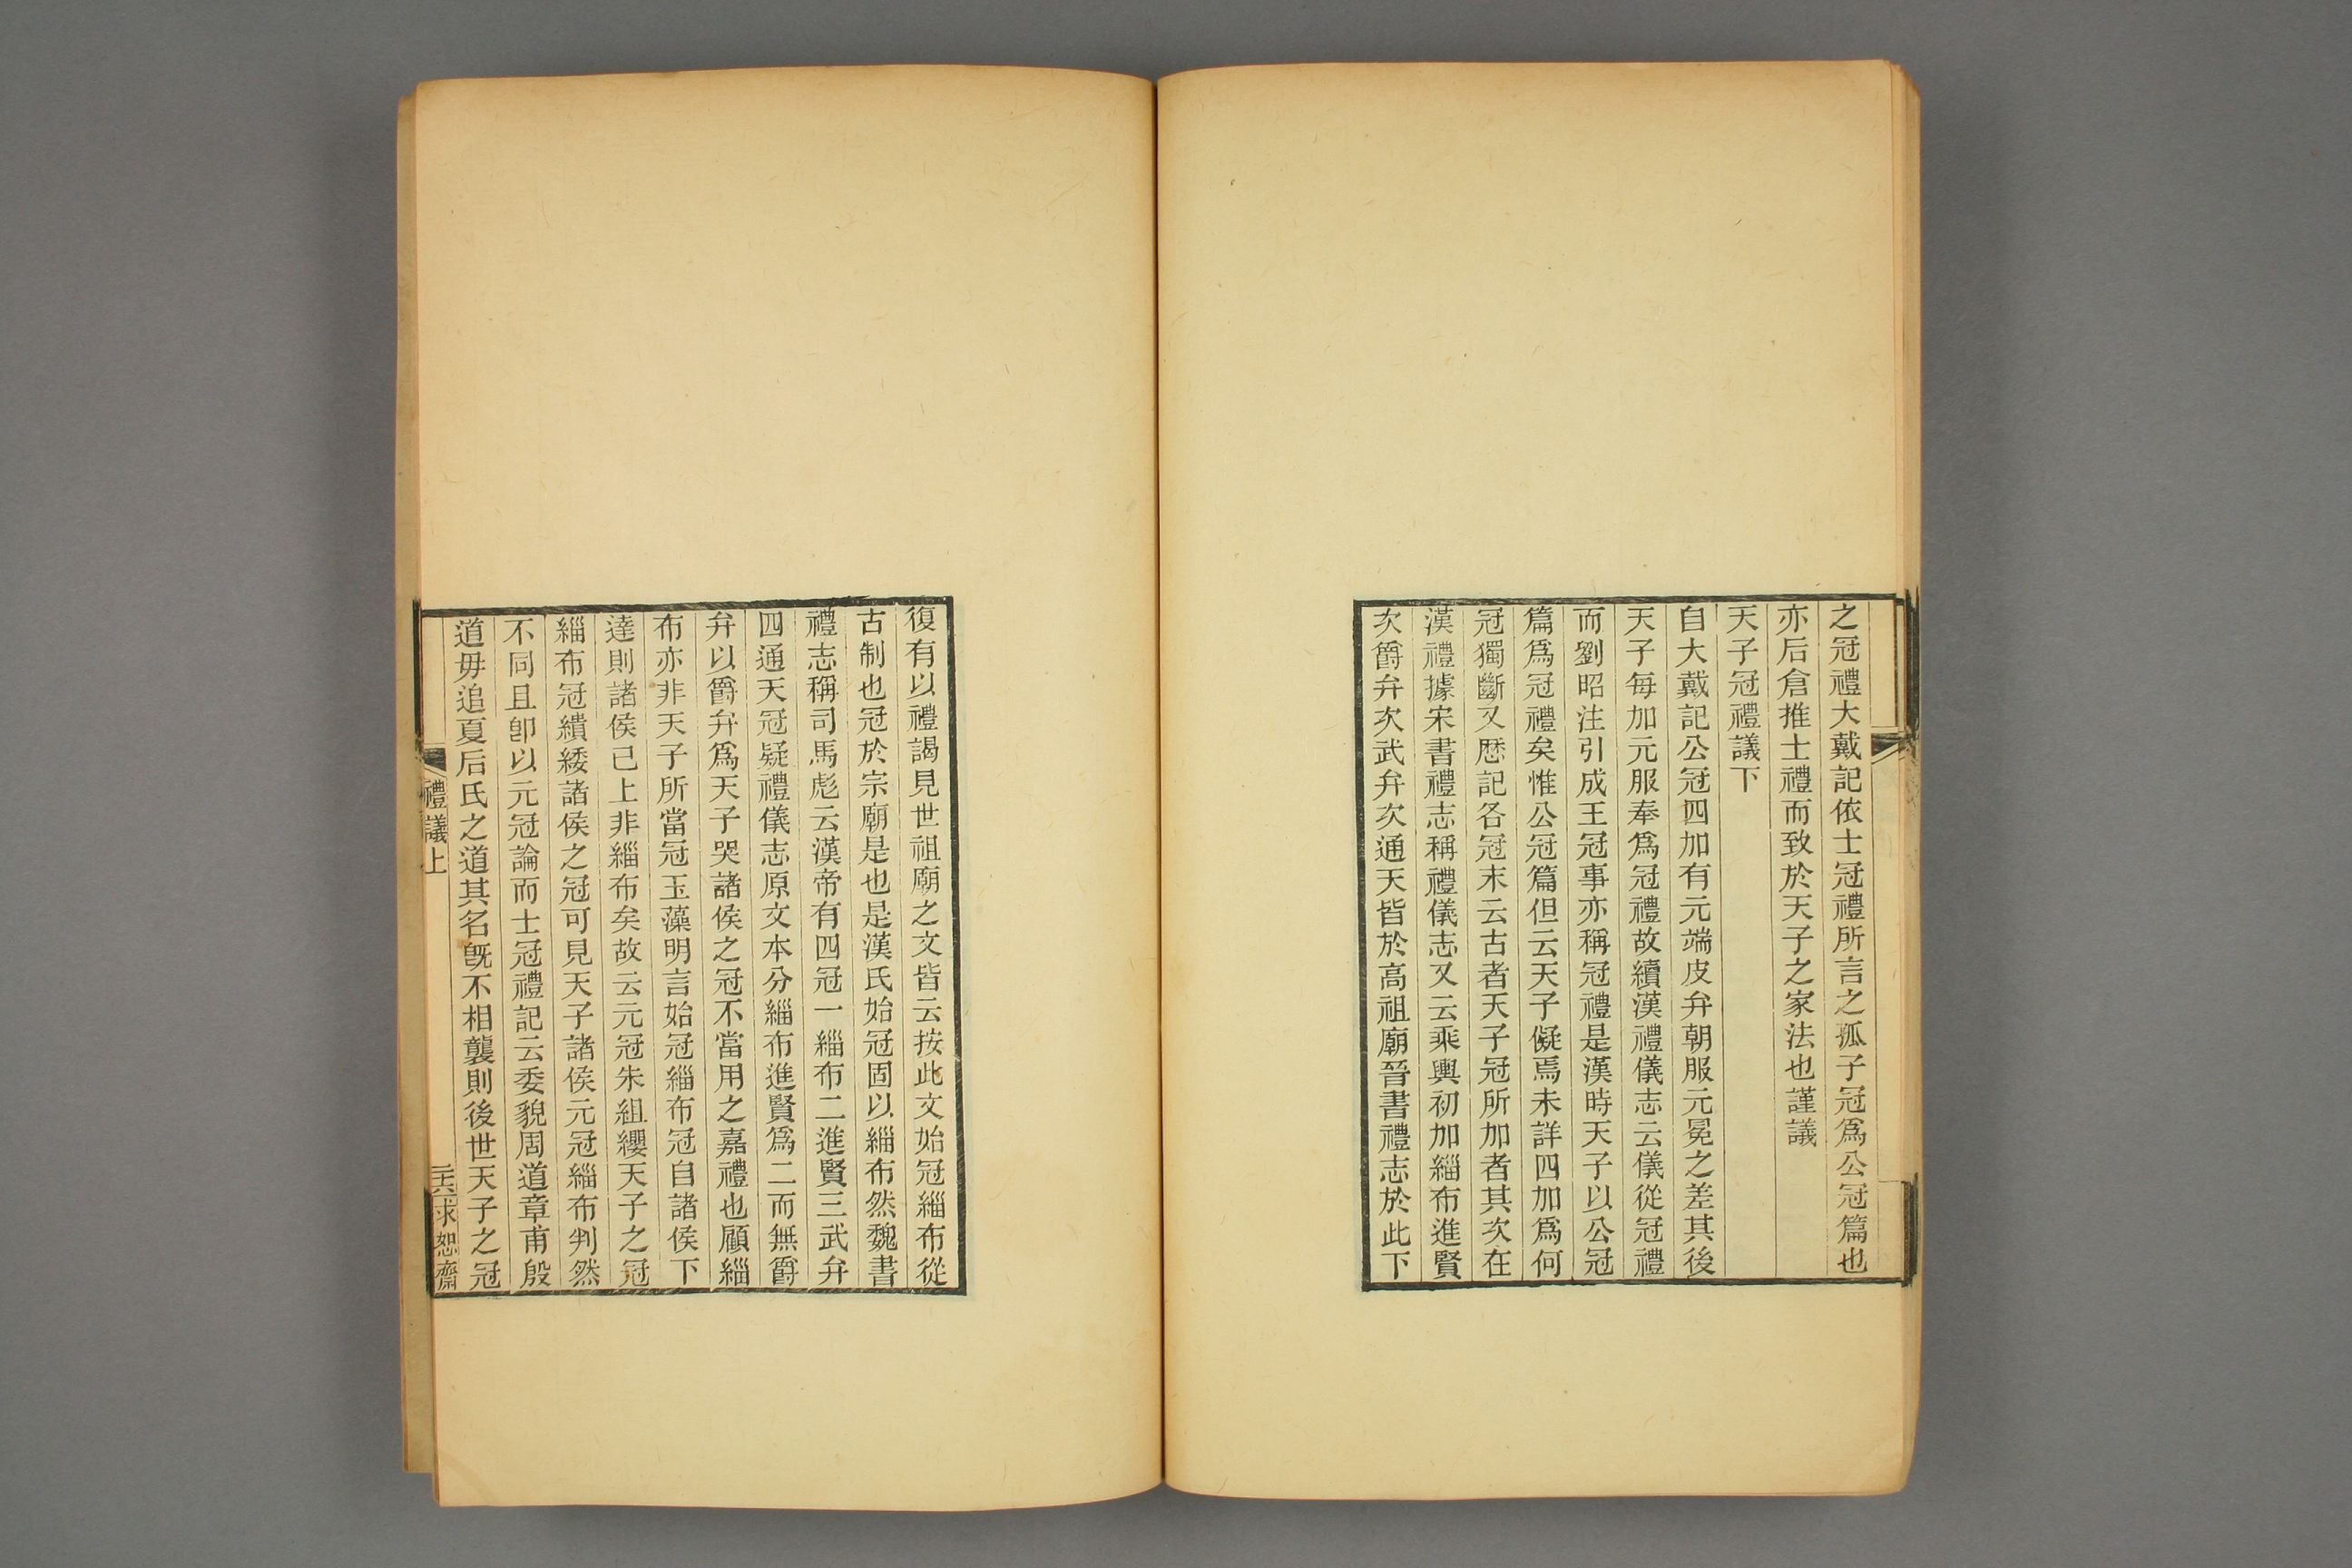 之冠禮大戴記依士冠禮所言之孤子冠爲公冠篇也
亦后倉推士禮而致於天子之家法也謹議
天子冠禮議下
自大戴記公冠四加有元端皮弁朝服元冕之差其後
天子每加元服奉爲冠禮故續漢禮儀志云儀從冠禮
而劉昭注引成王冠事亦稱冠禮是漢時天子以公冠
篇爲冠禮矣惟公冠篇但云天子儗焉未詳四加爲何
冠獨斷又歷記各冠末云古者天子冠所加者其次在
漢禮據宋書禮志稱禮儀志又云乘輿初加緇布進賢
次爵弁次武弁次通天皆於高祖廟晉書禮志於此下
復有以禮謁見世祖廟之文皆云按此文始冠緇布從
古制也冠於宗廟是也是漢氏始冠固以緇布然魏書
禮志稱司馬彪云漢帝有四冠一緇布二進賢三武弁
四通天冠疑禮儀志原文本分緇布進賢爲二而無爵
弁以爵弁爲天子哭諸侯之冠不當用之嘉禮也顧緇
布亦非天子所當冠玉藻明言始冠緇布冠自諸侯下
達則諸侯已上非緇布矣故云元冠朱組纓天子之冠
緇布冠繢緌諸侯之冠可見天子諸侯元冠緇布判然
不同且卽以元冠論而士冠禮記云委貌周道章甫殷
道毋追夏后氏之道其名旣不相襲則後世天子之冠
禮議上
求恕齋